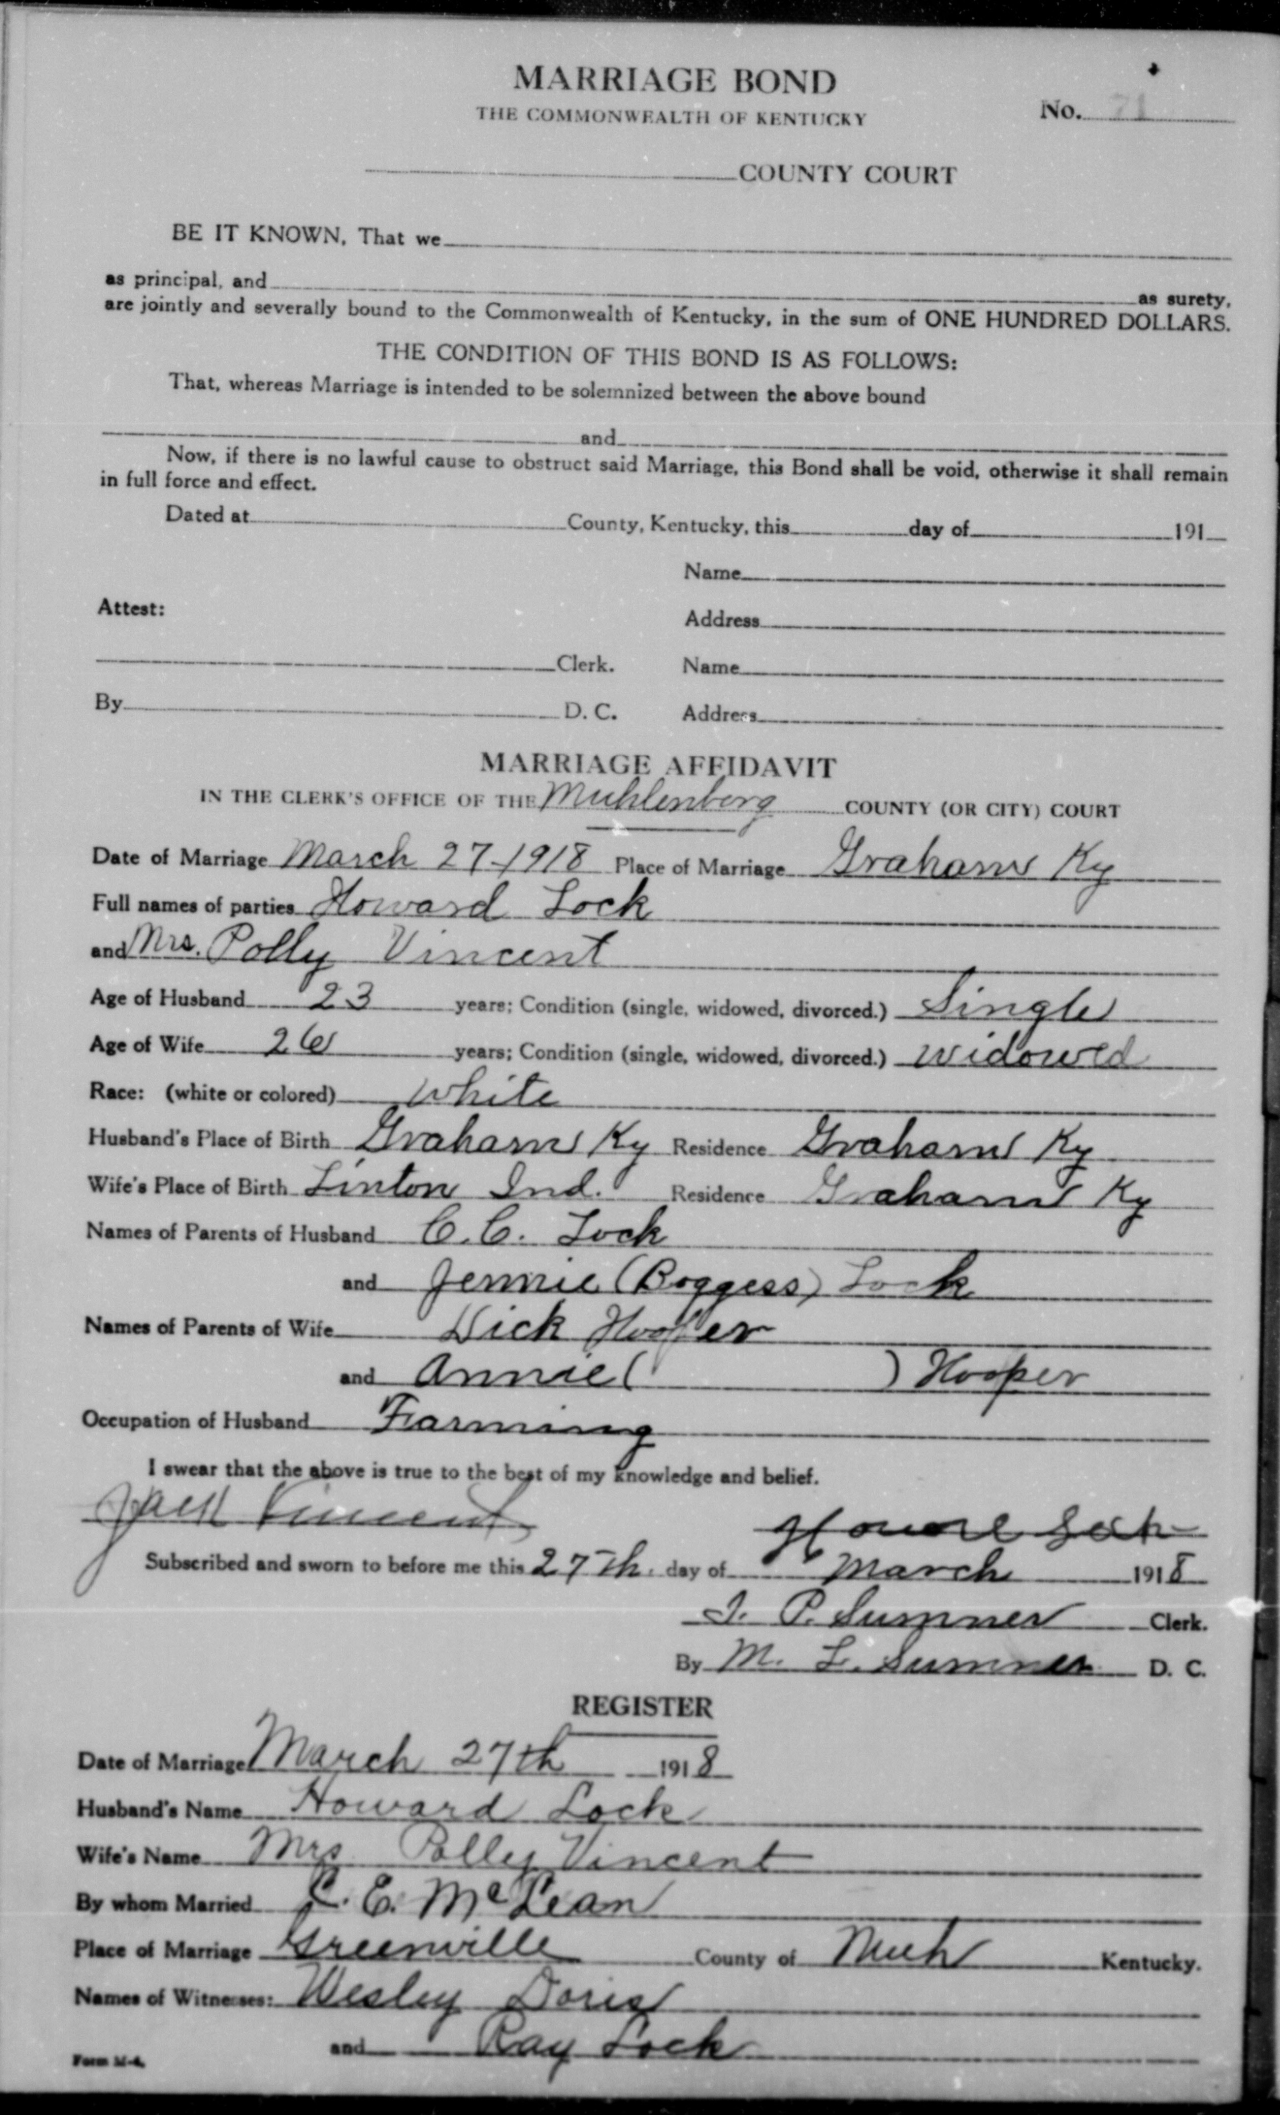 MARRIAGE BOND
THE COMMONWEALTH OF KENTUCKY
No. 71
COUNTY COURT
BE IT KNOWN, That we
as principal, and as surety,
are jointly and severally bound to the Commonwealth of Kentucky, in the sum of ONE HUNDRED DOLLARS.
THE CONDITION OF THIS BOND IS AS FOLLOWS:
That, whereas Marriage is intended to be solemnized between the above bound
and
Now, if there is no lawful cause to obstruct said Marriage, this Bond shall be void, otherwise it shall remain
in full force and effect.
Dated at County, Kentucky, this day of 191
Name
Attest:
Address
Clerk. Name
By D. C. Address
MARRIAGE AFFIDAVIT
IN THE CLERK'S OFFICE OF THE Muhlenberg COUNTY (OR CITY) COURT
Date of Marriage March 27-1918 Place of Marriage Graham Ky
Full names of parties Howard Lock
and Mrs. Polly Vincent
Age of Husband 23 years; Condition (single, widowed, divorced.) Single
Age of Wife 26 years; Condition (single, widowed, divorced.) Widowed
Race: (white or colored) White
Husband's Place of Birth Graham Ky Residence Graham Ky
Wife's Place of Birth Linton Ind. Residence Graham Ky
Names of Parents of Husband C. C. Lock
and Jennie (Boggess) Lock
Names of Parents of Wife Dick Hooper
and Annie ( ) Hooper
Occupation of Husband Farming
I swear that the above is true to the best of my knowledge and belief.
Jack Vincent Howard Lock
Subscribed and sworn to before me this 27th. day of March 1918
J. P. Sumner Clerk.
By M. L. Sumner D. C.
REGISTER
Date of Marriage March 27th 1918
Husband's Name Howard Lock
Wife's Name Mrs Polly Vincent
By whom Married L. E. McLean
Place of Marriage Greenville County of Muh Kentucky.
Names of Witnesses: Wesley Doris
and Ray Lock
Form M-4.